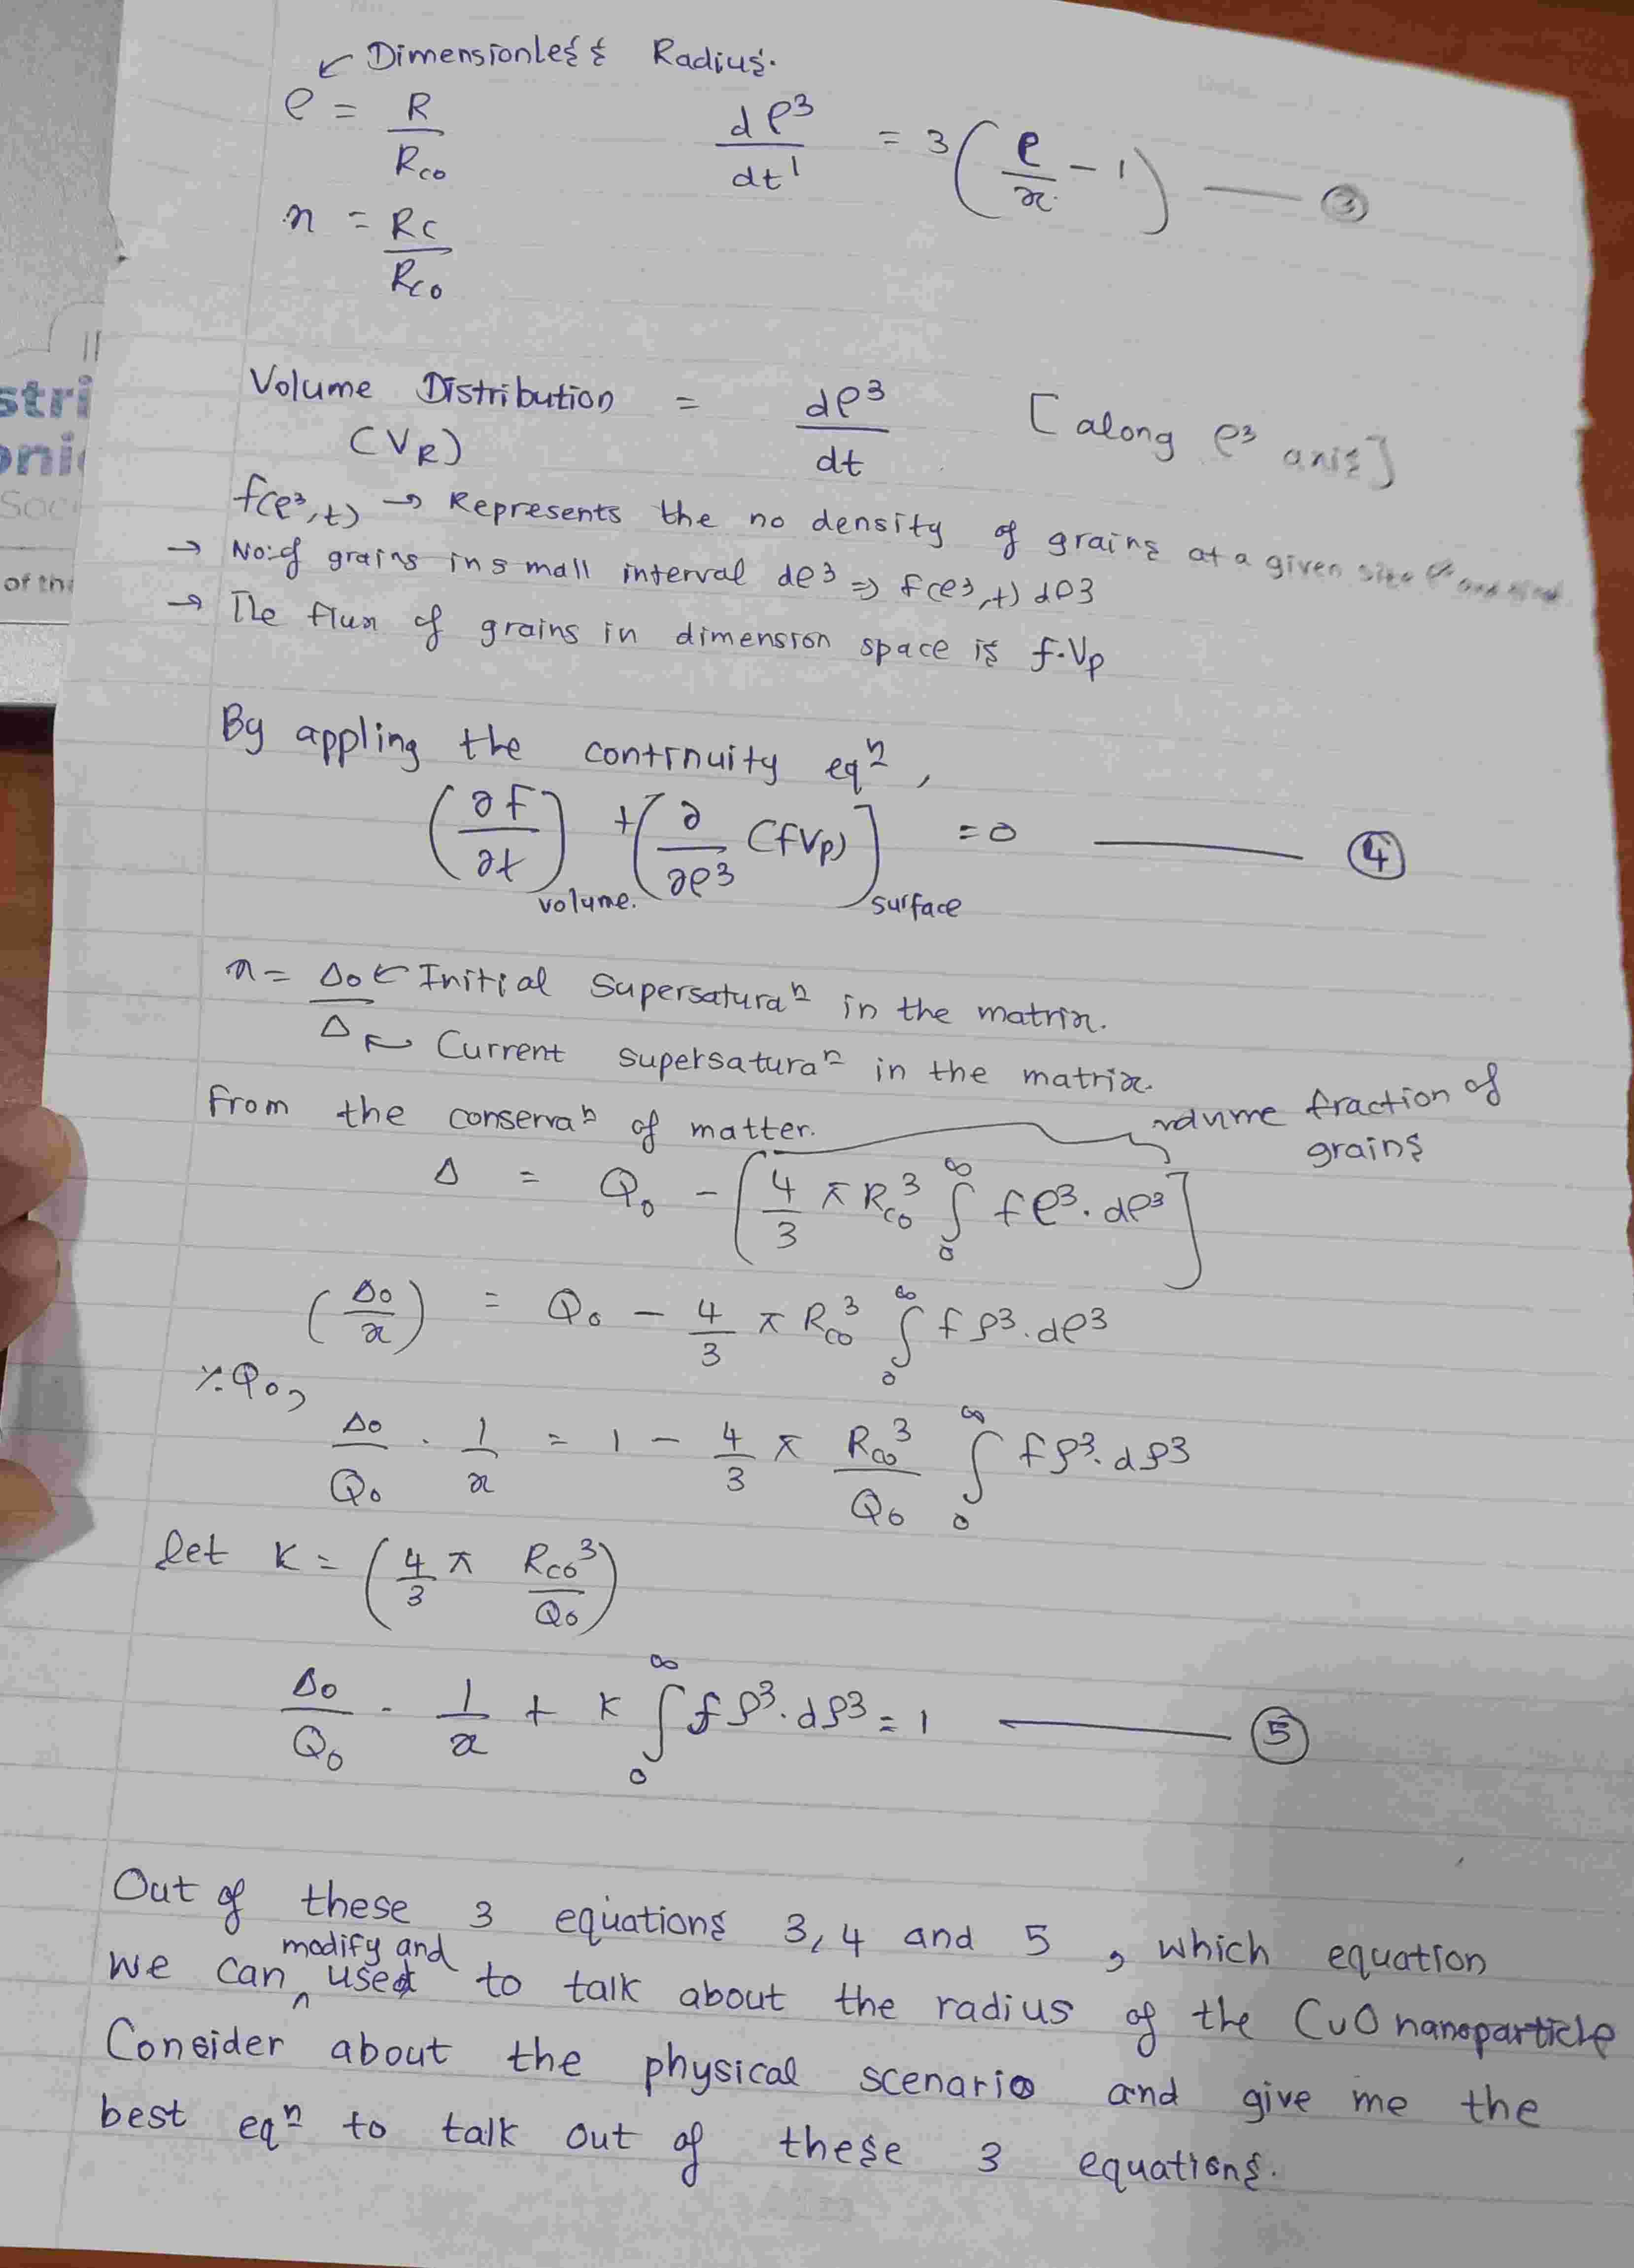 Dimensionless Radius.
ρ = R / Rco
dρ³ / dt' = 3 (ρ/x - 1) — ③
x = Rc / Rco
stri
oni
Soc
of the
Volume Distribution = dρ³/dt [along ρ³ axis]
(VR)
f(ρ³,t) → Represents the no density of grains at a given size
→ No: of grains in small interval dρ3 ⇒ f(ρ3,t) dρ3
→ The flux of grains in dimension space is f.Vp
By appling the continuity eqⁿ,
(∂F/∂t)volume. + (∂/∂ρ3 (fVp))surface = 0 — ④
x = Δo ← Initial Supersaturaⁿ in the matrix.
Δ ← Current supersaturaⁿ in the matrix.
From the conservaⁿ of matter.
volume fraction of
grains
Δ = Qo - [4/3 π Rco³ ∫₀^∞ fρ³. dρ³]
(Δo/x) = Qo - 4/3 π Rco³ ∫₀^∞ f ρ³. dρ³
٪ Qo,
Δo/Qo . 1/x = 1 - 4/3 π Rco³/Qo ∫₀^∞ fρ³. dρ3
let K = (4/3 π Rco³/Qo)
Δo/Qo . 1/x + K ∫₀^∞ f ρ³. dρ3 = 1 — ⑤
Out of these 3 equations 3, 4 and 5, which equation
we can modify and used to talk about the radius of the CuO nanoparticle
Consider about the physical scenario and give me the
best eqⁿ to talk out of these 3 equations.